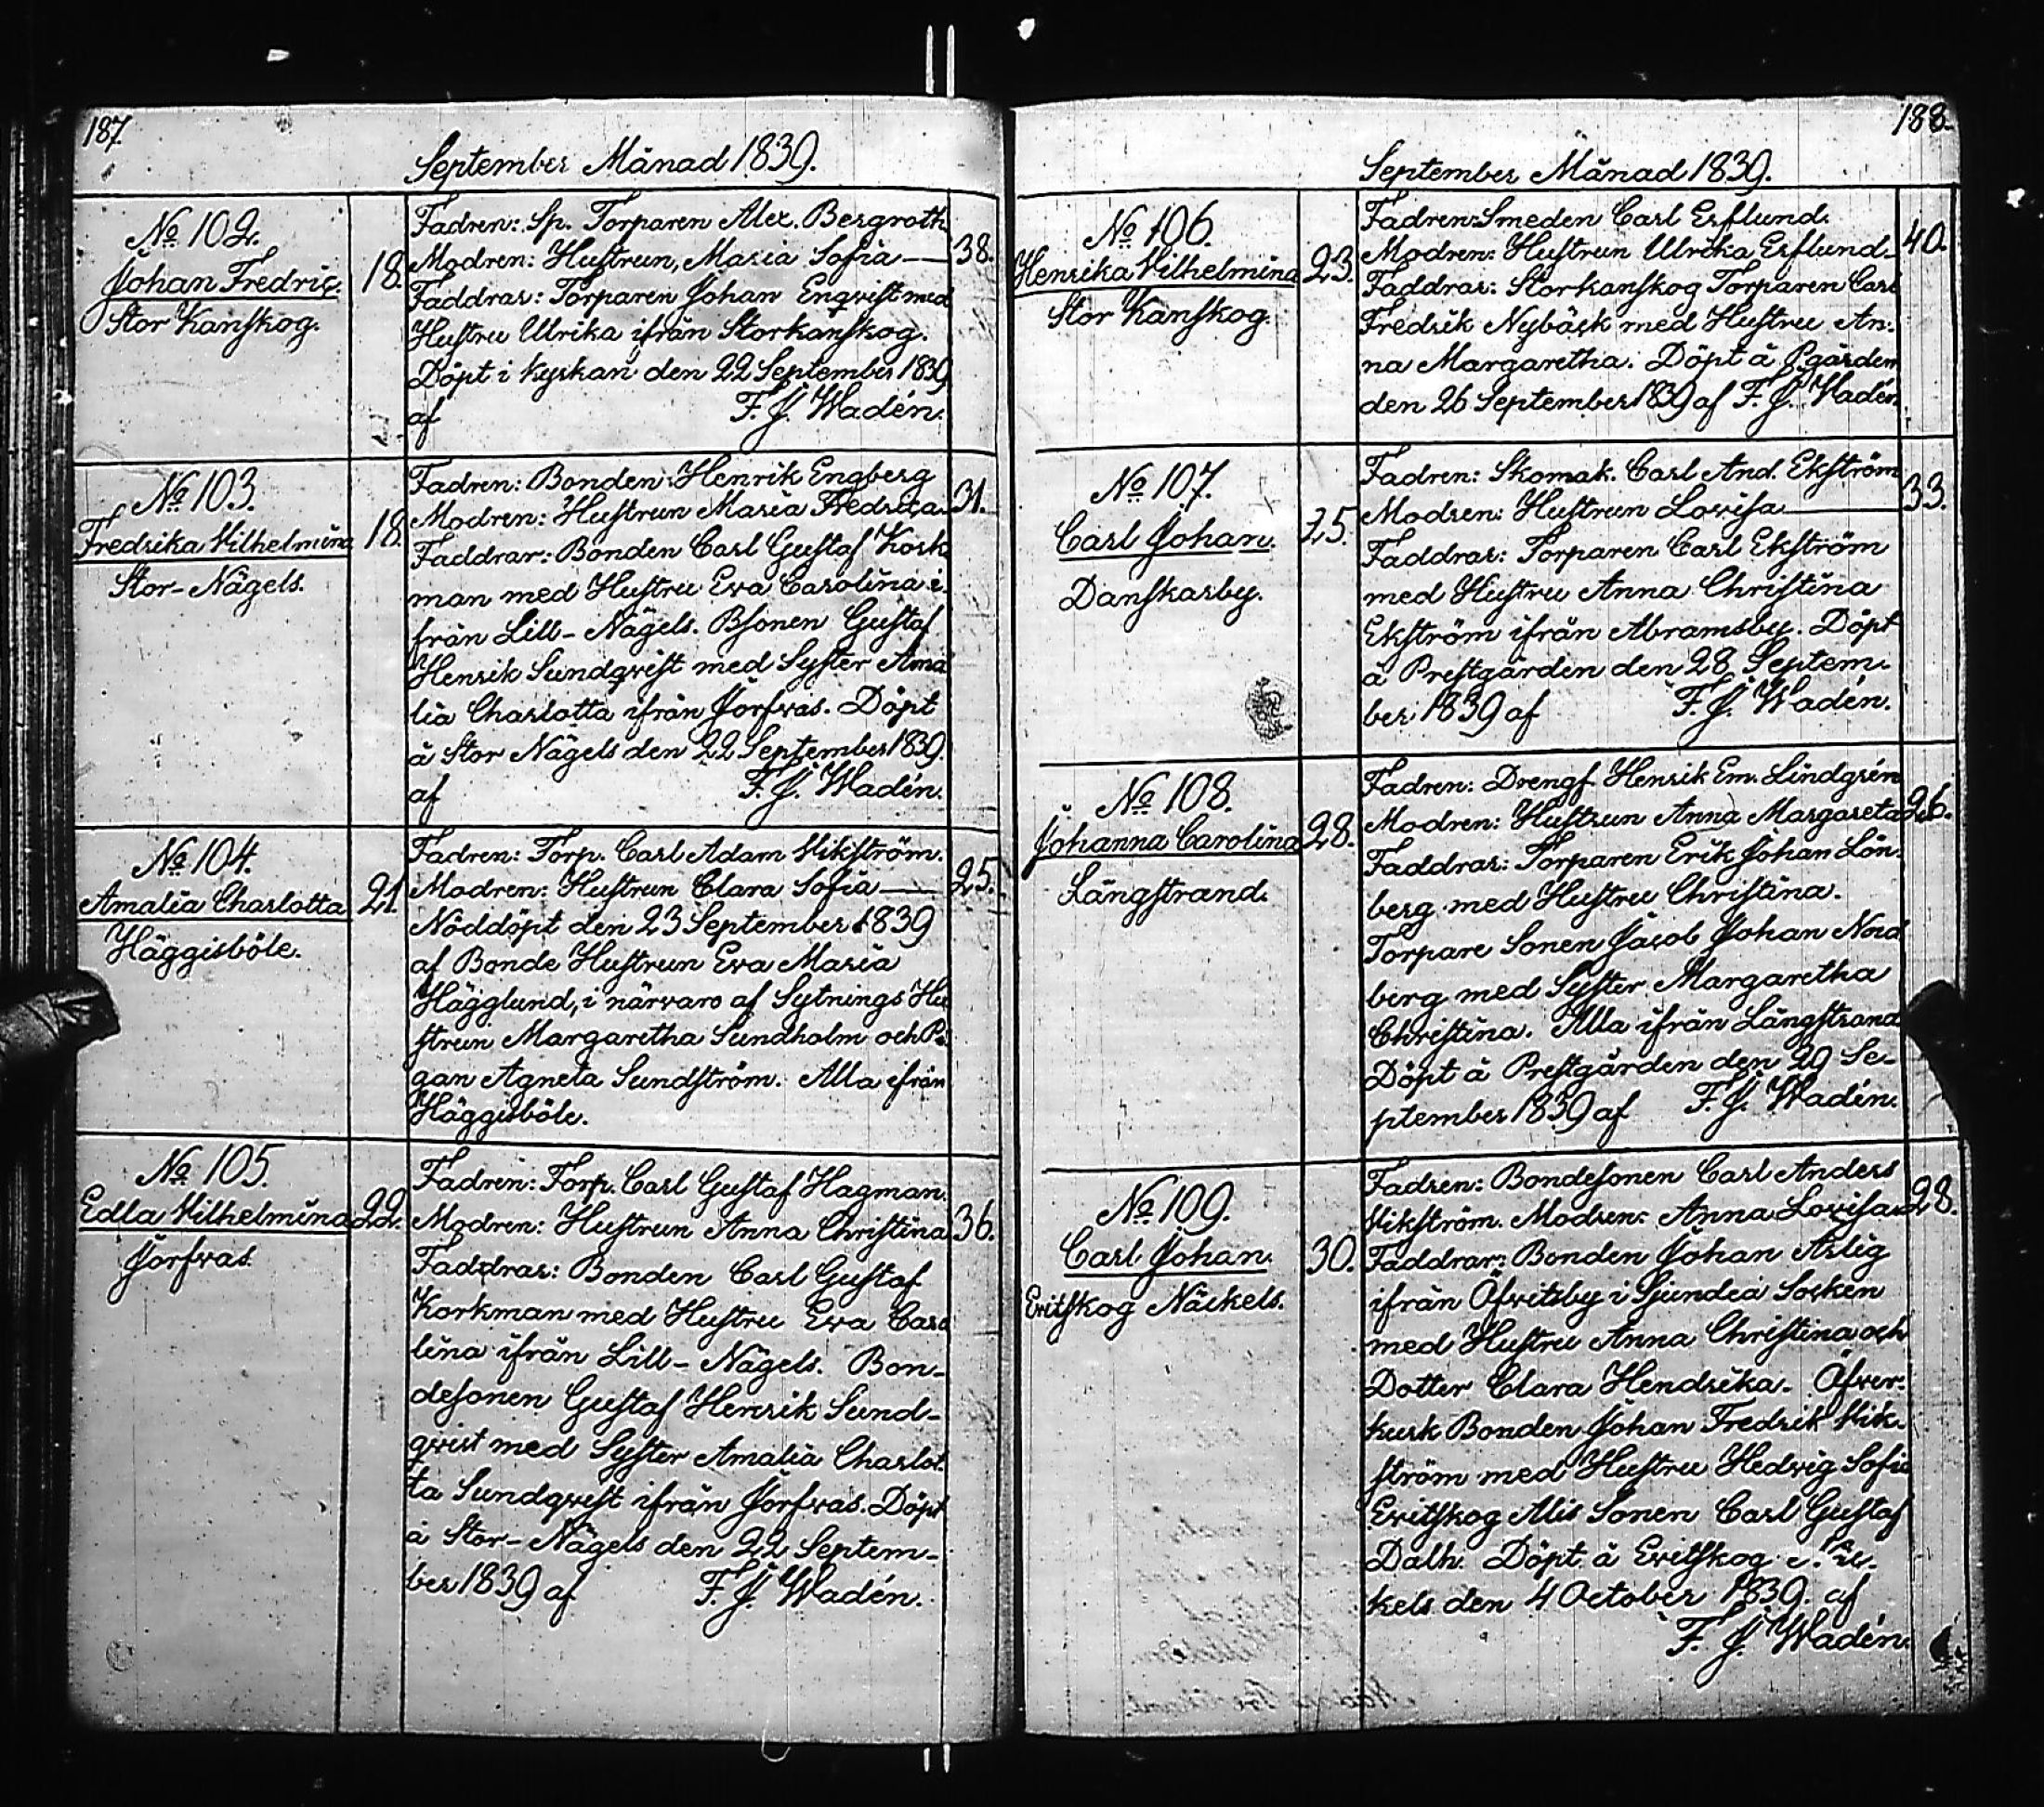 187.
September Månad 1839.
No 102.
Johan Fredric.
Stor Kanskog.
18.
Fadren: Sp. Torparen Alex. Bergroth
Modren: Hustrun, Maria Sofia —
38.
Faddrar: Torparen Johan Enqvist med
Hustru Ulrika ifrån Storkanskog.
Döpt i Kyrkan den 22 September 1839
af F. J. Wadén.
No 103.
Fredrika Vilhelmina
Stor-Nägels.
18.
Fadren: Bonden Henrik Engberg
Modren: Hustrun Maria Fredrica.
31.
Faddrar: Bonden Carl Gustaf Kork
man med Hustru Eva Carolina i
från Lill-Nägels. Bsonen Gustaf
Henrik Sundqvist med Syster Ama
lia Charlotta ifrån Jorfvas. Döpt
å Stor Nägels den 22 September 1839.
af F. J. Wadén.
No 104.
Amalia Charlotta
Häggisböle.
21.
Fadren: Torp. Carl Adam Vikström.
Modren: Hustrun Clara Sofia —
25.
Nöddöpt den 23 September 1839
af Bonde Hustrun Eva Maria
Hägglund, i närvaro af Sytnings Hu
strun Margaretha Sundholm och Pi
gan Agneta Sundström. Alla ifrån
Häggisböle.
No 105.
Edla Vilhelmina
Jorfvas.
22.
Fadren: Torp. Carl Gustaf Hagman.
Modren: Hustrun Anna Christina
36.
Faddrar: Bonden Carl Gustaf
Korkman med Hustru Eva Caro
lina ifrån Lill-Nägels. Bon-
desonen Gustaf Henrik Sund-
qvist med Syster Amalia Charlot-
ta Sundqvist ifrån Jorfvas. Döpt
å Stor-Nägels den 22 Septem-
ber 1839 af F. J. Wadén.
188.
September Månad 1839.
No 106.
Henrika Vilhelmina
Stor Kanskog.
23.
Fadren: Smeden Carl Erflund.
Modren: Hustrun Ulrika Erflund.
40.
Faddrar: Storkanskog Torparen Carl
Fredrik Nybäck med Hustru An-
na Margaretha. Döpt å Pgården
den 26 September 1839 af F. J. Wadén
No 107.
Carl Johan.
Danskarby.
25.
Fadren: Skomak. Carl And. Ekström
Modren: Hustrun Lovisa —
33.
Faddrar: Torparen Carl Ekström
med Hustru Anna Christina
Ekström ifrån Abramsby. Döpt
å Prestgården den 28 Septem-
ber 1839 af F. J. Wadén.
No 108.
Johanna Carolina
Långstrand.
28.
Fadren: Drengf Henrik Em. Lindgrén
Modren: Hustrun Anna Margareta
26.
Faddrar: Torparen Erik Johan Lön-
berg med Hustru Christina.
Torpare Sonen Jacob Johan Nord
berg med Syster Margaretha
Christina. Alla ifrån Långstrand
Döpt å Prestgården den 29 Se-
ptember 1839 af F. J. Wadén.
No 109.
Carl Johan.
Evitskog Näckels.
30.
Fadren: Bondesonen Carl Anders
Vikström. Modren: Anna Lovisa
28.
Faddrar: Bonden Johan Arlig
ifrån Öfvitsby i Sjundeå Socken
med Hustru Anna Christina och
Dotter Clara Hendrika. Öfver-
kurk Bonden Johan Fredrik Vik-
ström med Hustru Hedvig Sofia
Evitskog Mis Sonen Carl Gustaf
Dalh. Döpt å Evitskog
kels den 4 October 1839. af
F. J. Wadén.